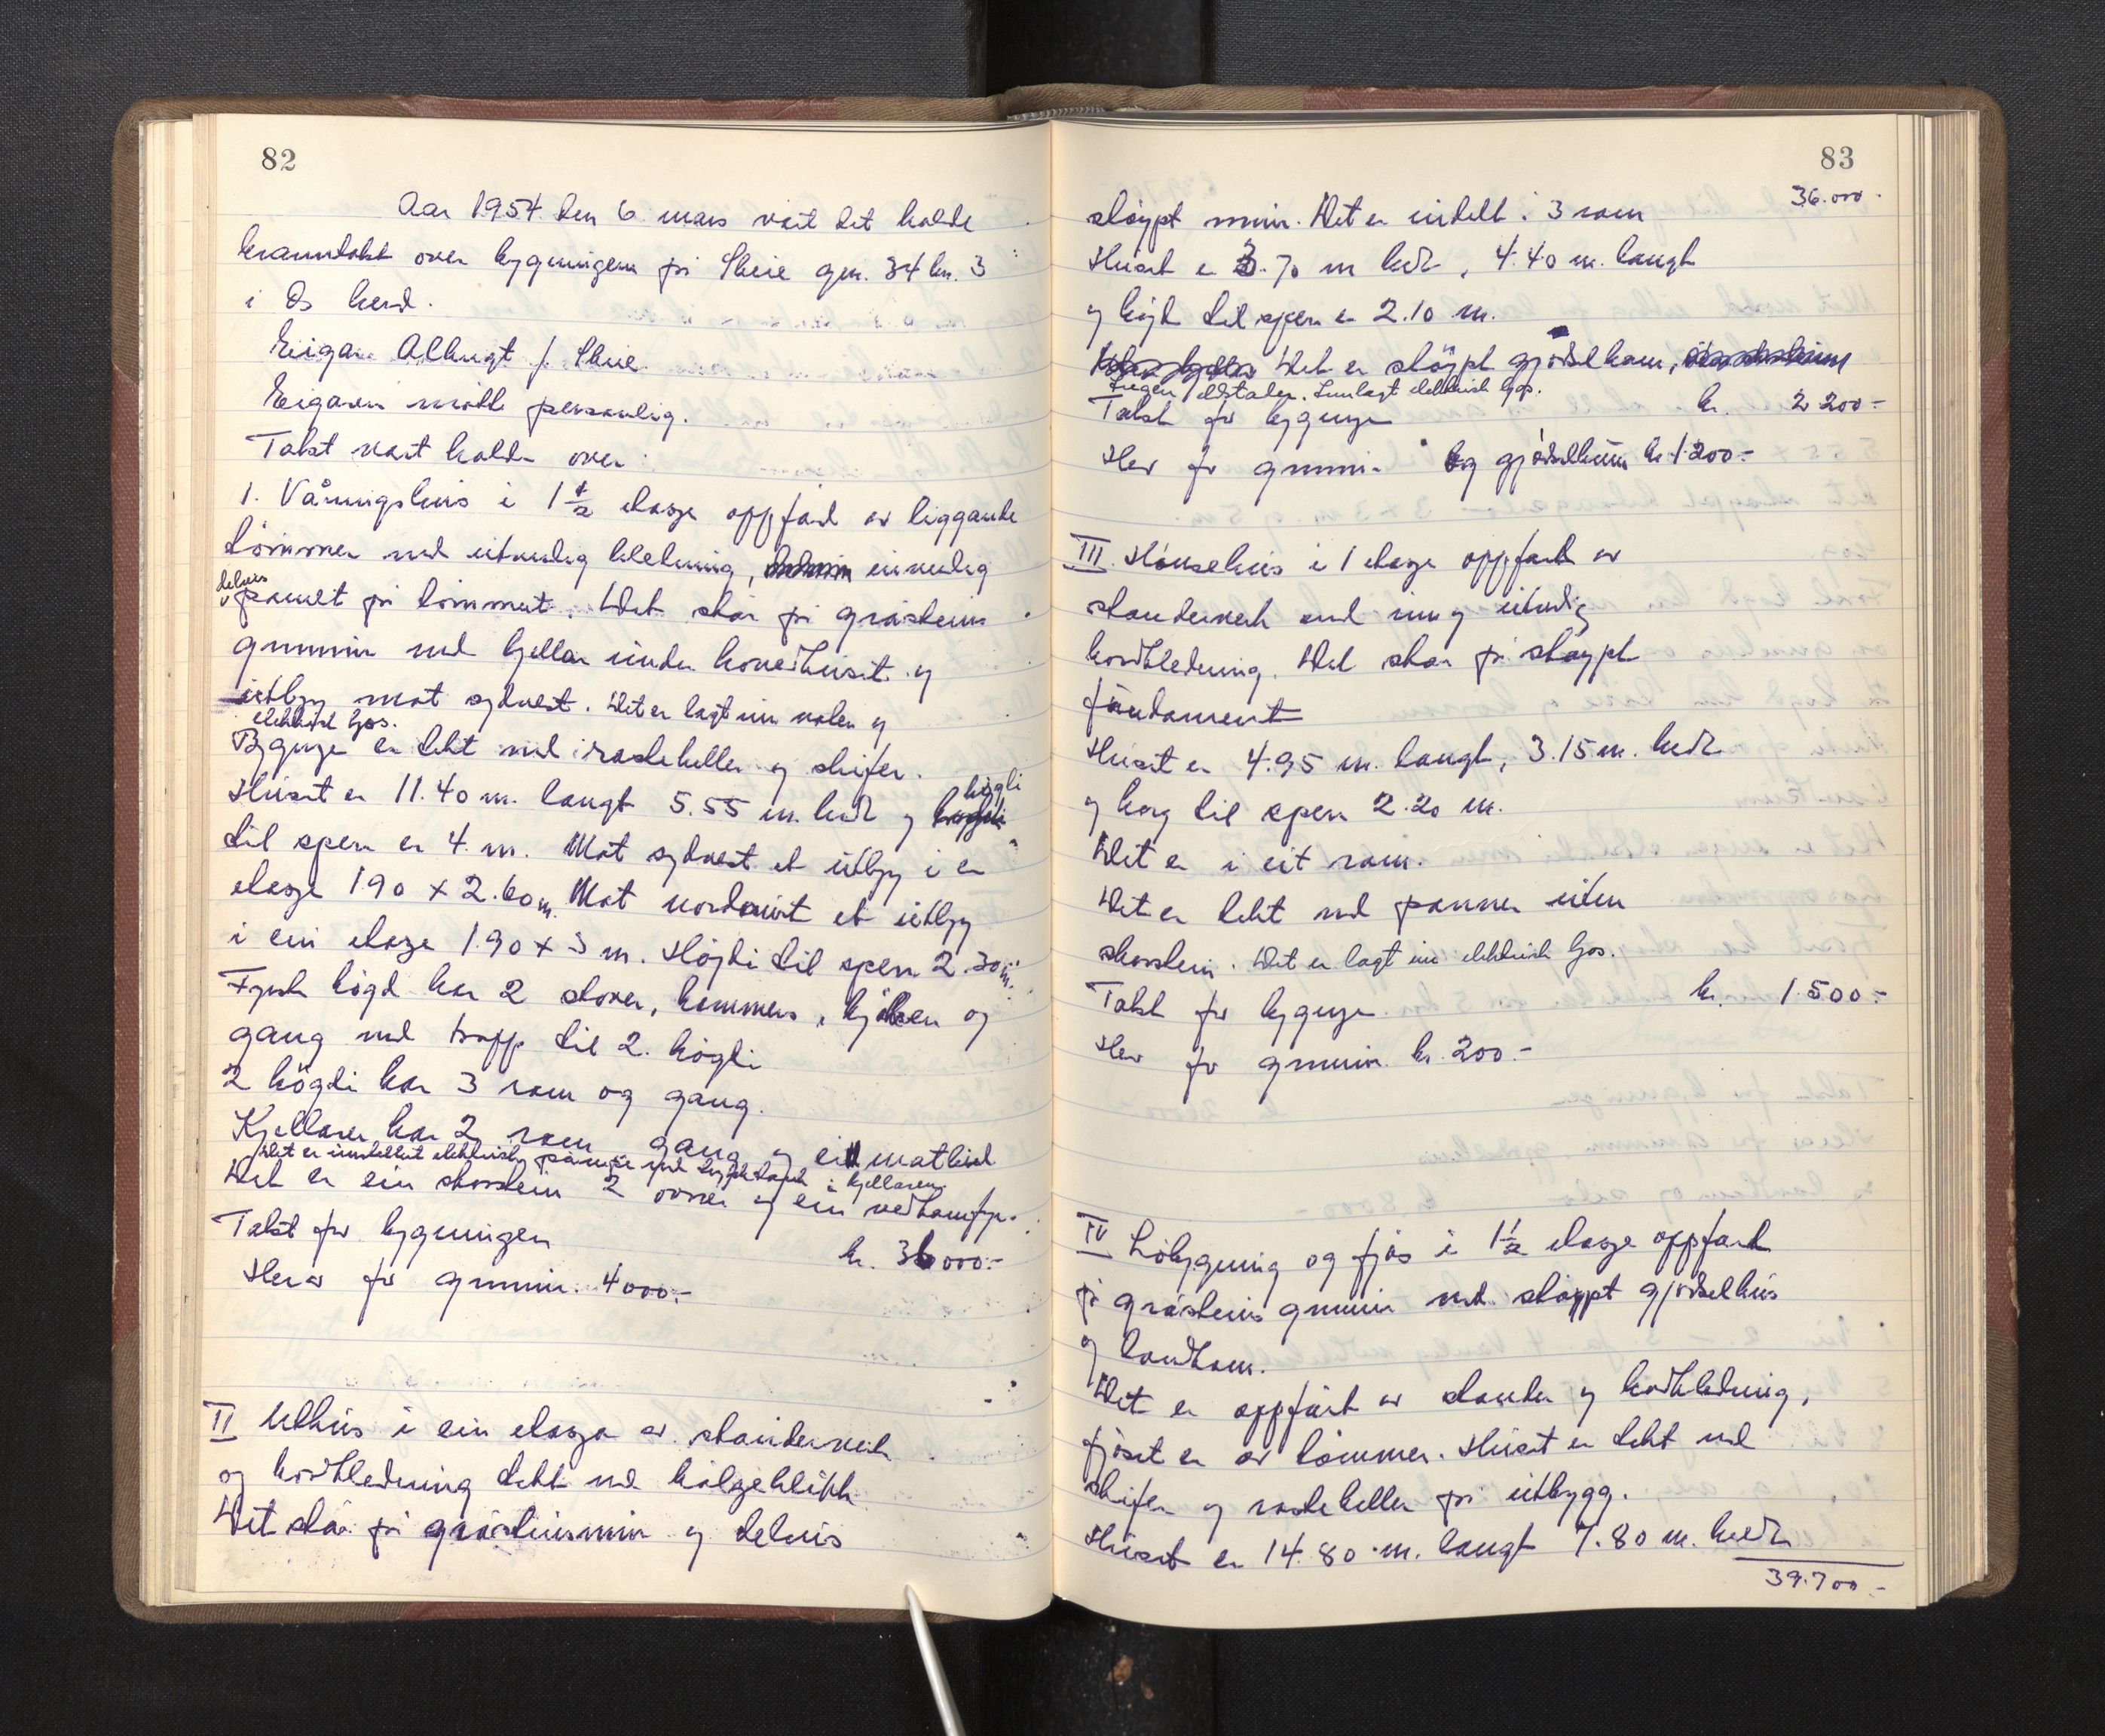 82
Aar 1954 den 6 mars vart det halde
branntakst over bygningen på Skeie gnr. 34 bn. 3
i Os herad.
Eigar Albrigt J. Skeie
Eigaren møtte personlig.
Takst vart halde over:
1. Våningshus i 1 1/2 etasje oppført av liggande
tømmer med utvendig kledning, innvendig
delvis
panelt på tømmeret. Det står på gråsteins
grunnmur med kjellar under hovedhuset og
utbygg mot sydvest. Det er lagt inn vatn og
elektrisk ljos.
Bygningen er tekt med rasteheller og skifer.
Huset er 11.40 m. langt 5.55 m. bredt og högdi
til sperr er 4 m. Mot sydvest et utbygg i en
etasje 1.90 x 2.60 m. Mot nordaust et utbygg
i ein etasje 1.90 x 3 m. Högdi til sperr 2.30 m.
Fyrste högd har 2 stover, kammers, kjøkken og
gang med trapp til 2. högdi
2 högdi har 3 rom og gang.
Kjellaren har 2 rom gang og eit matbud
Det er innstallert elektrisk pumpe med trykktank i kjellaren.
Det er ein skorstein 2 ovner og ein vedkomfyr.
Takst for bygningen
kr. 36000.-
Herav for grunnmur. 4000.-
II Uthus i ein etasje av stenderverk
og bordkledning tekt med bølgeblikk
Det står på gråsteinsmur og delvis
83
36.000.-
støypt mur. Det er inndelt i 3 rom
Huset er 3.70 m bredt, 4.40 m. langt
og högd til sperr er 2.10 m.
Det er støypt gjødselkom,
Ingen eldstader. Innlagt elektrisk ljos.
Takst for bygningen kr. 2 200-
Herav for grunnmur og gjødselkum kr. 1200.-
III. Hönsehus i 1 etasje oppført av
stenderverk med inn og utvendig
bordkledning. Det står på støypt
fundament
Huset er 4.95 m. langt, 3.15 m. bredt
og høg til sperr 2.20 m.
Det er i eit rom.
Det er tekt med panner uten
skorstein. Det er lagt inn elektrisk ljos.
Takst for bygningen kr. 1.500.-
Herav for grunnmur kr. 200.-
IV Løbygning og fjøs i 1 1/2 etasje oppført
på gråsteins grunnmur med støypt gjødselhus
og landkum.
Det er oppført av stender og bordkledning,
fjøset er av tømmer. Huset er tekt med
skifer og rasteheller på utbygg.
Huset er 14.80 m. langt 7.80 m. bredt
39.700.-